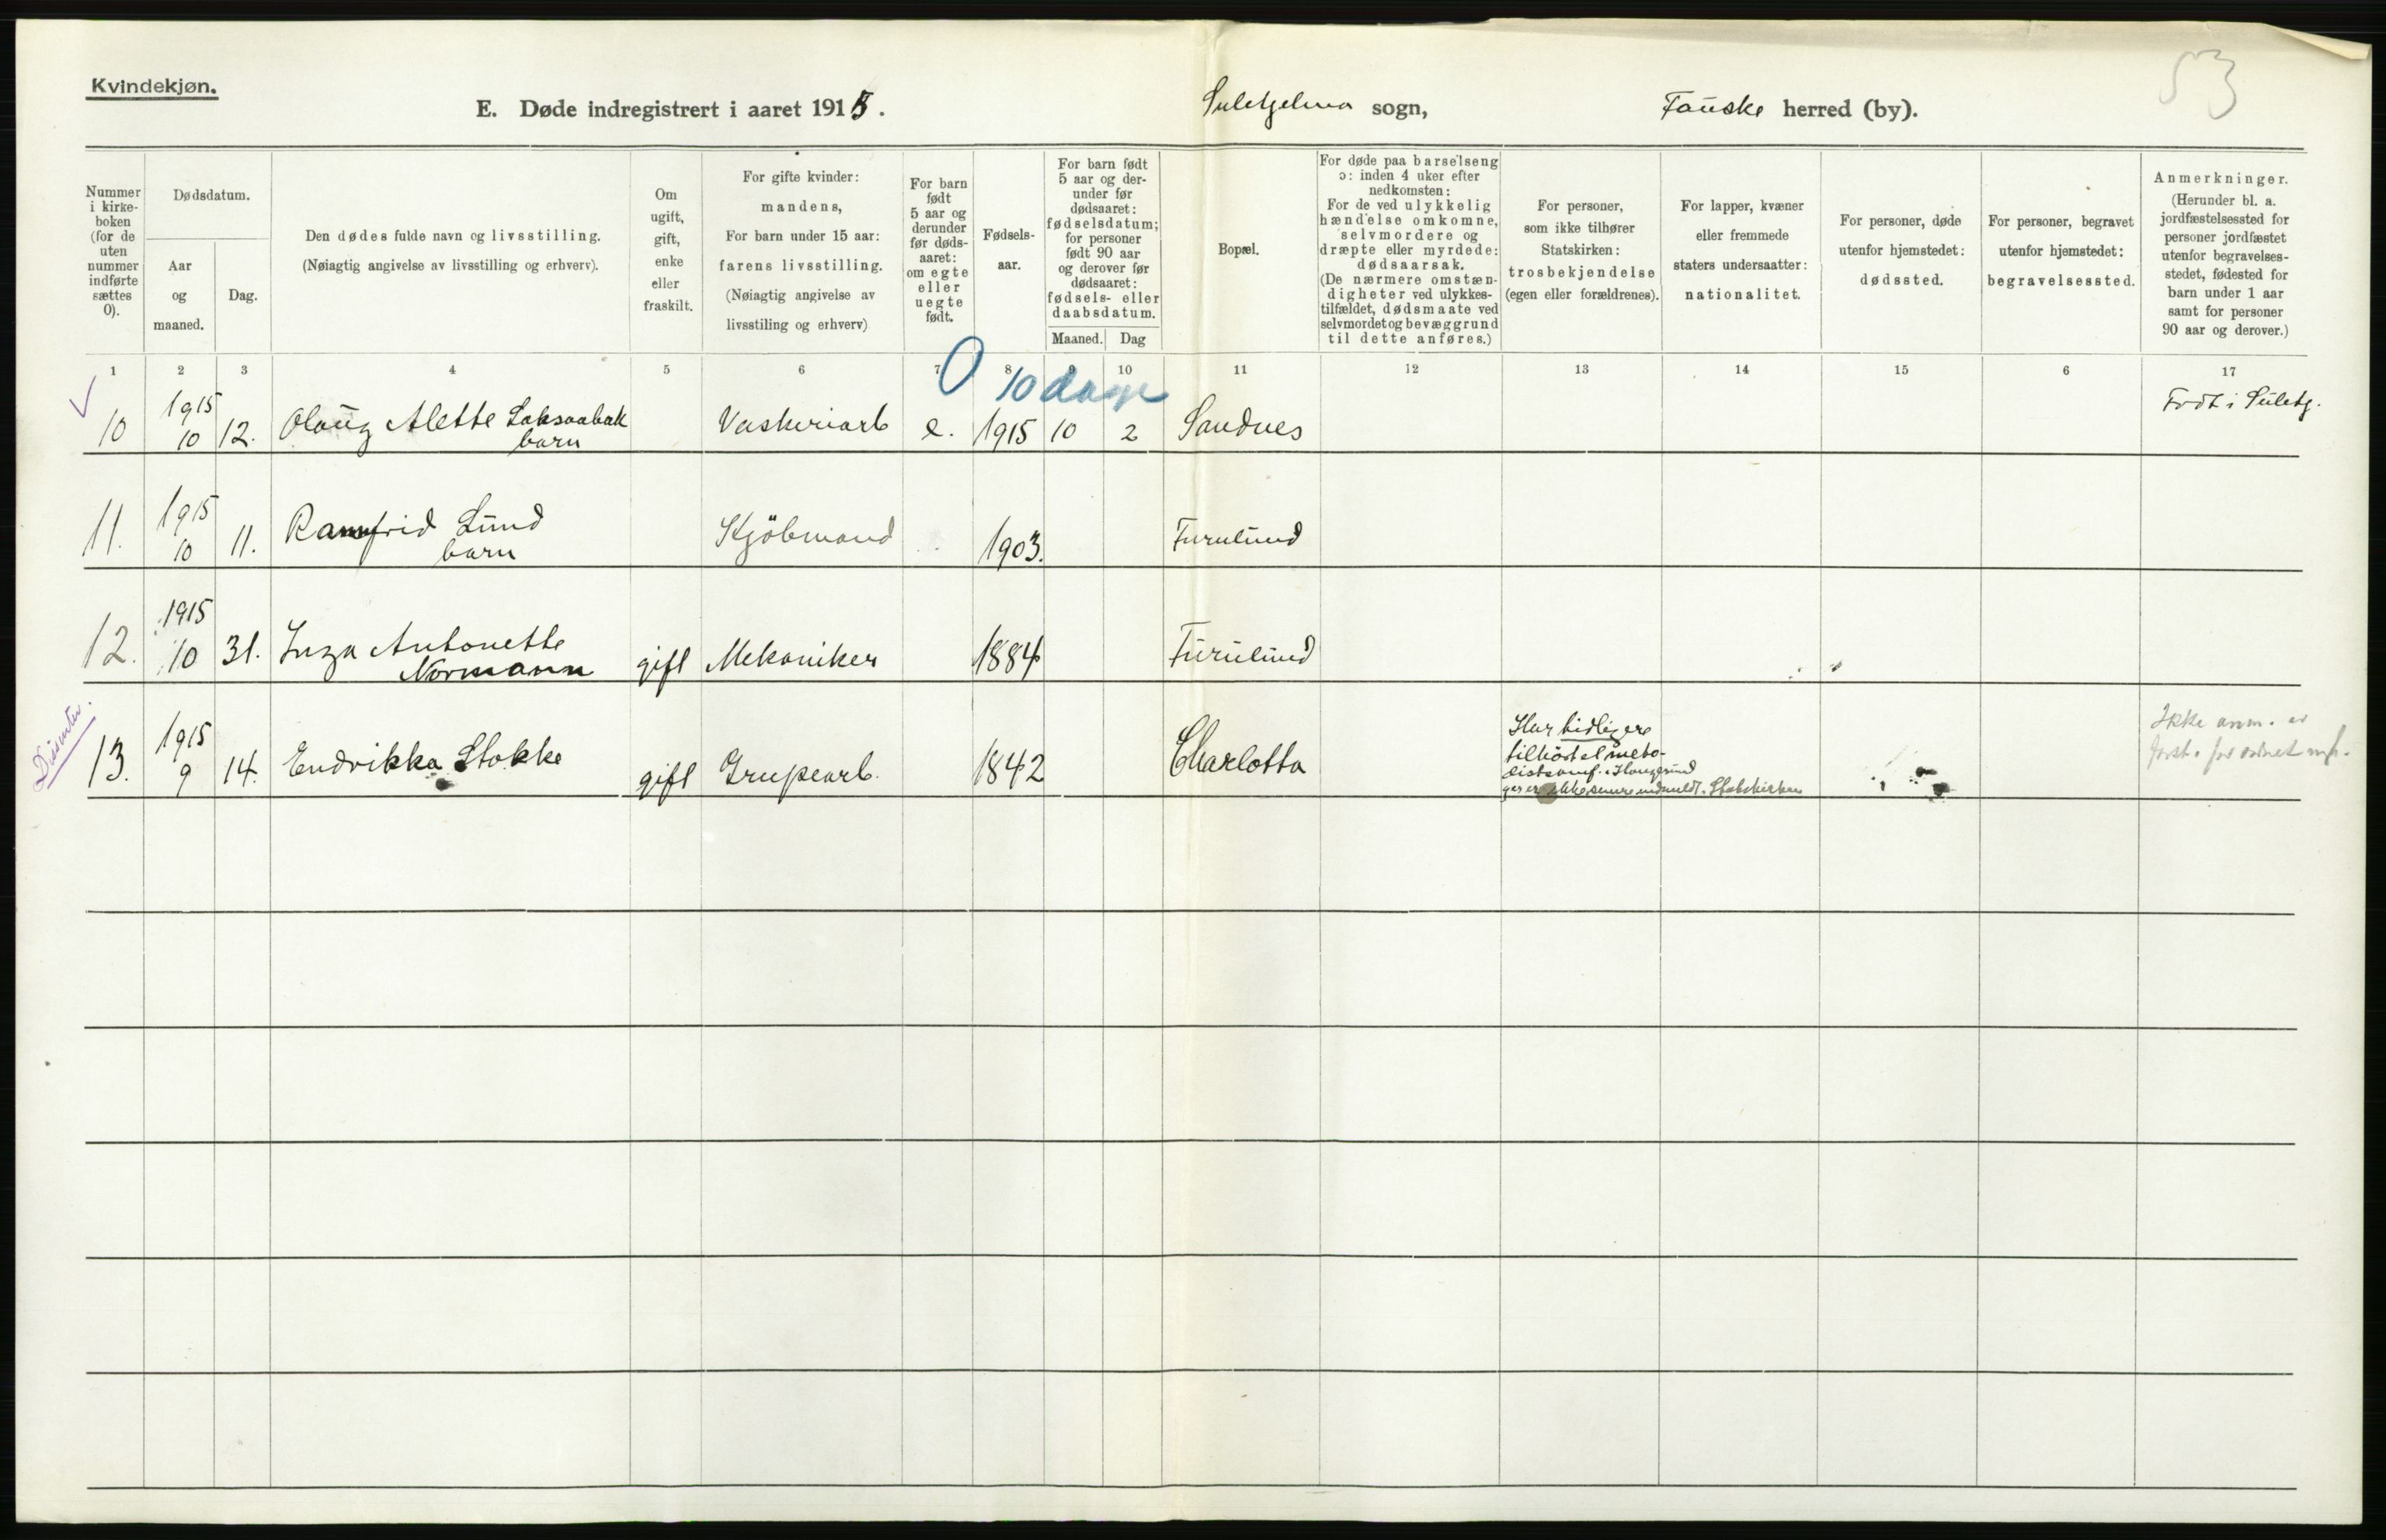 53
Kvindekjøn.
E. Døde indregistrert i aaret 1915. Suletjelma sogn, Fauske herred (by).
Nummer
i kirke-
boken
(for de
uten
nummer
indførte
sættes
0).
Dødsdatum.
Aar
og
maaned.
Dag.
Den dødes fulde navn og livsstilling.
(Nøiagtig angivelse av livsstilling og erhverv).
Om
ugift,
gift,
enke
eller
fraskilt.
For gifte kvinder:
mandens,
For barn under 15 aar:
farens livsstilling.
(Nøiagtig angivelse av
livsstiling og erhverv)
For barn
født
5 aar og
derunder
før døds-
aaret:
om egte
eller
uegte
født.
Fødsels-
aar.
For barn født
5 aar og der-
under før
dødsaaret:
fødselsdatum;
for personer
født 90 aar
og derover før
dødsaaret:
fødsels- eller
daabsdatum.
Maaned. Dag
Bopæl.
For døde paa barselseng
ɔ: inden 4 uker efter
nedkomsten:
For de ved ulykkelig
hændelse omkomne,
selvmordere og
dræpte eller myrdede:
dødsaarsak.
(De nærmere omstæn-
digheter ved ulykkes-
tilfældet, dødsmaate ved
selvmordet og bevæggrund
til dette anføres.)
For personer,
som ikke tilhører
Statskirken:
trosbekjendelse
(egen eller forældrenes).
For lapper, kvæner
eller fremmede
staters undersaatter:
nationalitet.
For personer, døde
utenfor hjemstedet:
dødssted.
For personer, begravet
utenfor hjemstedet:
begravelsessted.
Anmerkninger.
(Herunder bl. a.
jordfæstelsessted for
personer jordfæstet
utenfor begravelses-
stedet, fødested for
barn under 1 aar
samt for personer
90 aar og derover.)
1 2 3 4 5 6 7 8 9 10 11 12 13 14 15 6 17
0 10 dage
10 1915 10 12. Olaug Alette Laksaabak barn Vaskeriarb e. 1915 10 2 Sandnes Født i Suletj.
11. 1915 10 11. Rannfrid Lund barn Kjöbmand 1903. Furulund
12. 1915 10 31. Inga Antonette Normann gift Mekaniker 1884 Furulund
Dissenter.
13. 1915 9 14. Endrikka Stokke gift Grupearb. 1842 Charlotta
Har tidligere
tilhört el meto-
distsamf. i Haugesund
ikke indmeldt i Statskirken
Ikke anm. er